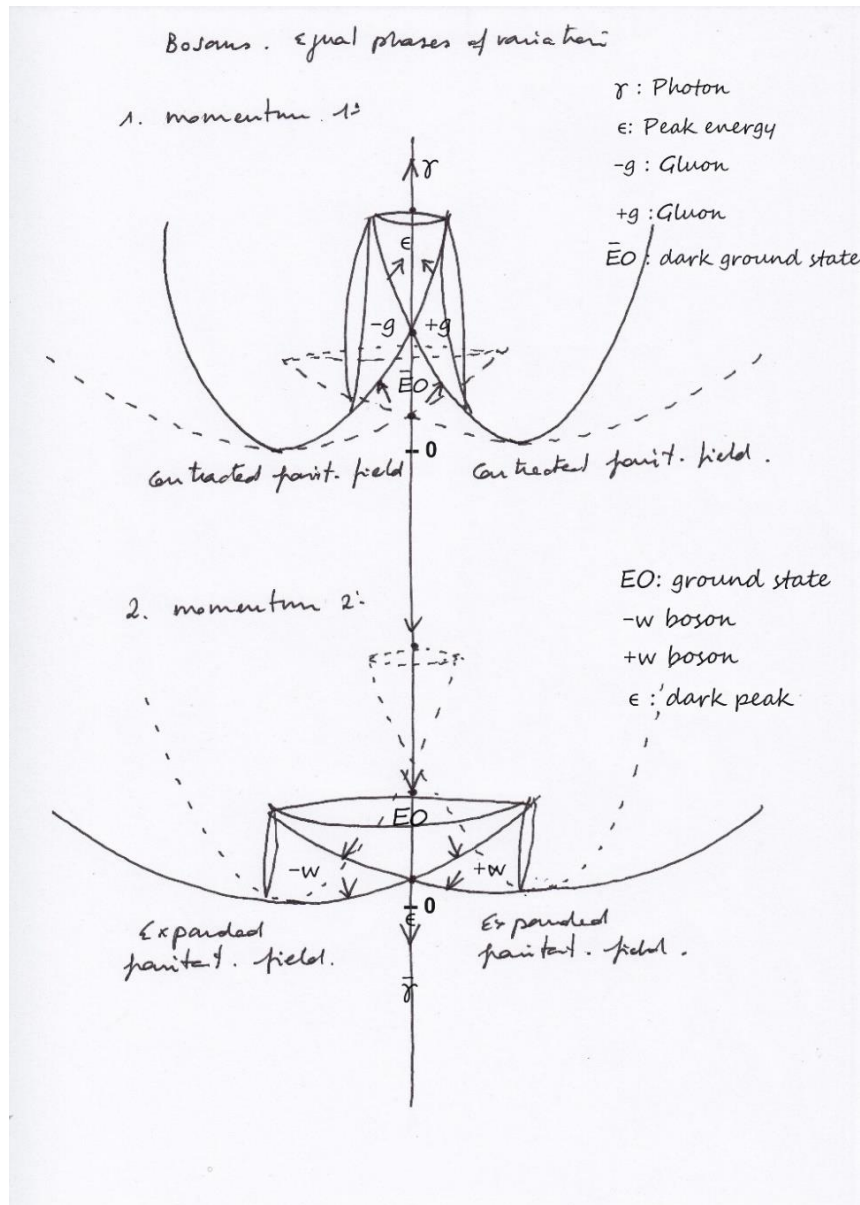 Bosons. Equal phases of variation
1. momentum 1:
γ : Photon
ϵ: Peak energy
-g : Gluon
+g : Gluon
E̅O : dark ground state
γ
ϵ
-g +g
E̅O
0
Contracted field
Contracted field.
2. momentum 2:
EO: ground state
-w boson
+w boson
ϵ : dark peak
EO
-w +w
0
ϵ
Expanded field.
Expanded field.
γ̅